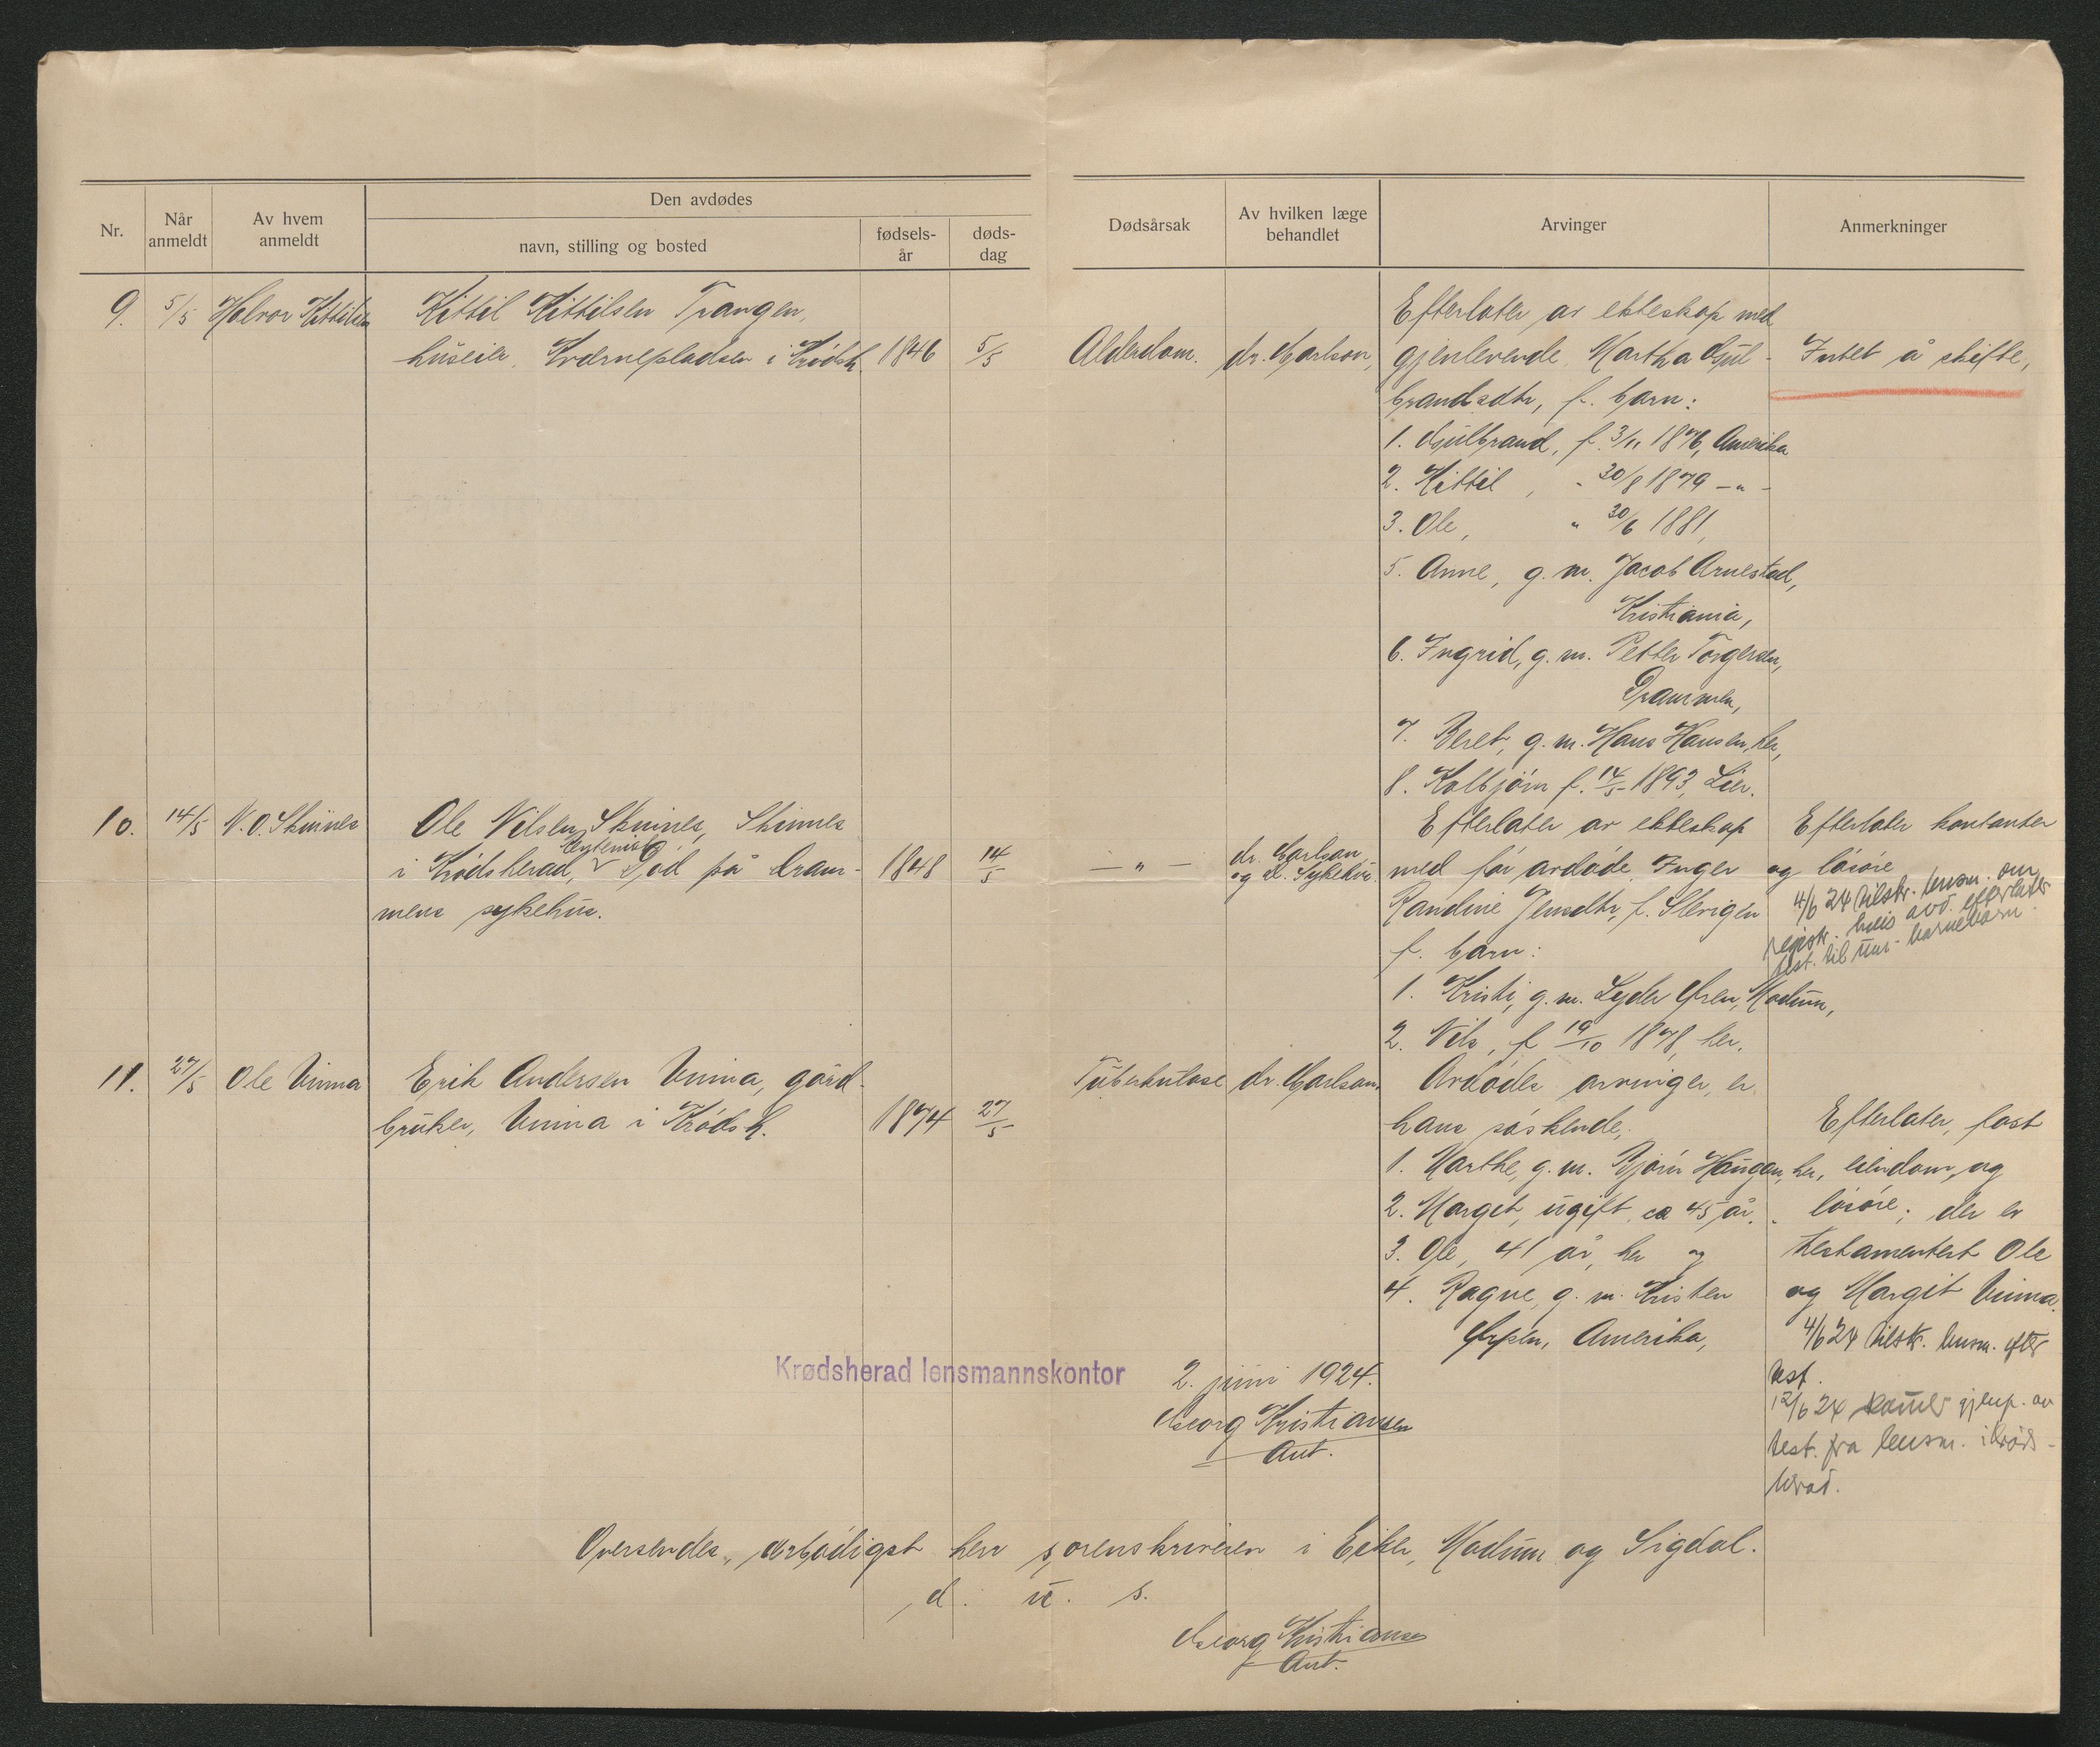 Nr.
Når anmeldt
Av hvem anmeldt
Den avdødes
navn, stilling og bosted
fødsels-år
døds-dag
Dødsårsak
Av hvilken læge behandlet
Arvinger
Anmerkninger
9. 5/5 Halvor Kittilsen
Kittil Kittilsen Trangen,
huseier, Kværnepladsen i Krødsh. 1846 5/5
Alderdom. dr. Carlson,
Efterlater av ekteskap med
gjenlevende Martha Gul-
brandsdtr, f. barn:
1. Gulbrand, f. 3/11 1876, Amerika
2. Kittil, " 30/8 1879 — " —
3. Ole, " 30/6 1881,
5. Anne, g. m. Jacob Arnestad,
Kristiania,
6. Ingrid, g. m. Petter Torgersen,
Drammen,
7. Beret, g. m. Hans Hansen, her,
8. Kolbjörn f. 14/5 1893, Lier.
Intet å skifte,
10. 14/5 N. O. Skinnes
Ole Nilsen Skinnes, Skinnes
i Krødsherad, Död på Dram-
mens sykehus.
1848 14/5
— " —
dr. Carlson
og D. Sykehus.
Efterlater av ekteskap
med før avdöde Inger
Randine Jensdtr, f.
f. barn:
1. Kristi, g. m. Lyder Øren, Modum,
2. Nils, f 19/10 1878, her.
Efterlater kontanter
og lösöre
4/6 24 tilskr. lensm. om
registr. hvis avd. efterlater
test. til um. barnebarn
11. 27/5 Ole Vinna
Erik Andersen Vinna, gård-
bruker, Vinna i Krödsh.
1874 27/5
Tuberkulose dr. Carlson.
Avdödes arvinger, er
hans söskende;
1. Marthe, g. m. Björn Haugen, her,
2. Marget, ugift, ca 45 år, "
3. Ole, 41 år, her og
4. Ragne, g. m. Kristen
Ørpen, Amerika,
Efterlater, fast
eiendom, og
lösöre; der er
testamentert Ole
og Margit Vinna.
4/6 24 tilskr. lensm. efter
test.
12/6 24 gjenp. av
test. fra lensm. i Krøds-
herad.
Krødsherad lensmannskontor 2. juni 1924.
Georg Kristiansen
Aut.
Oversendes, ærbödigst herr sorenskriveren i Eiker, Modum og Sigdal.
d. u. s.
Georg Kristiansen
Aut.